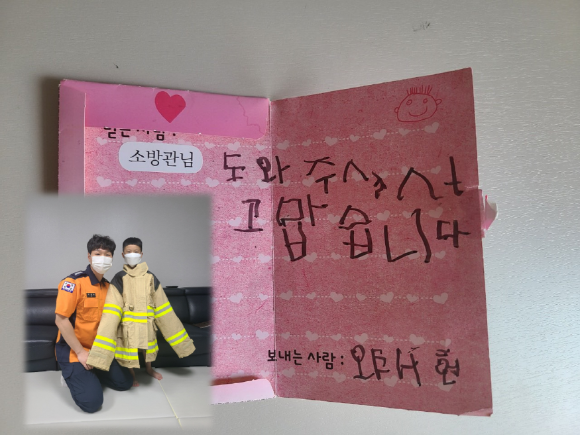 받는 사람 :
소방관님
도와 주셔서
고맙습니다
보내는 사람 :